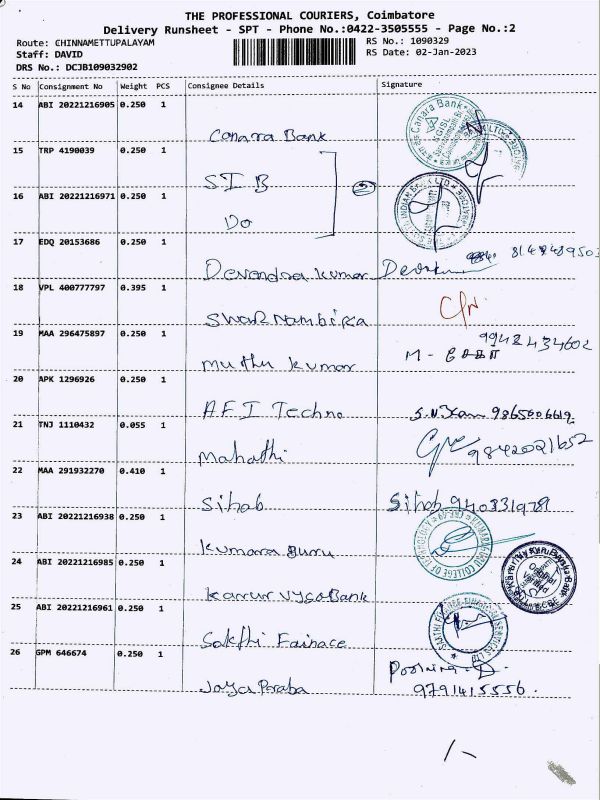 THE PROFESSIONAL COURIERS, Coimbatore
Delivery Runsheet - SPT - Phone No.:0422-3505555 - Page No.:2
Route: CHINNAMETTUPALAYAM
RS No.: 1090329
Staff: DAVID
RS Date: 02-Jan-2023
DRS No.: DCJB109032902
S No Consignment No Weight PCS Consignee Details Signature
14 ABI 20221216905 0.250 1
Canara Bank
Canara Bank
15 TRP 4190039 0.250 1
SIB
16 ABI 20221216971 0.250 1
Do
17 EDQ 20153686 0.250 1
Devandra kumar
18 VPL 400777797 0.395 1
Swarnambika
19 MAA 296475897 0.250 1
9942434602
Muthu kumar M -
20 APK 1296926 0.250 1
AFI Techno 9865606619
21 TNJ 1110432 0.055 1
Mahathi 9842021652
22 MAA 291932270 0.410 1
Sihab Sihab
23 ABI 20221216938 0.250 1
Kumara Guru
24 ABI 20221216985 0.250 1
Karur Vysa Bank
25 ABI 20221216961 0.250 1
Sakthi Fainace
26 GPM 646674 0.250 1
Jaya Praba 9791415556.